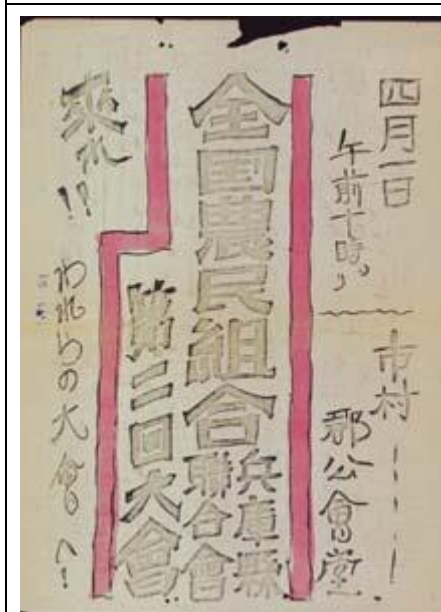 四月一日
午前十時ゟ
市村
郡公會堂
全国農民組合
兵庫縣
聯合會
第二回大會
來れ!!
われらの大會へ!